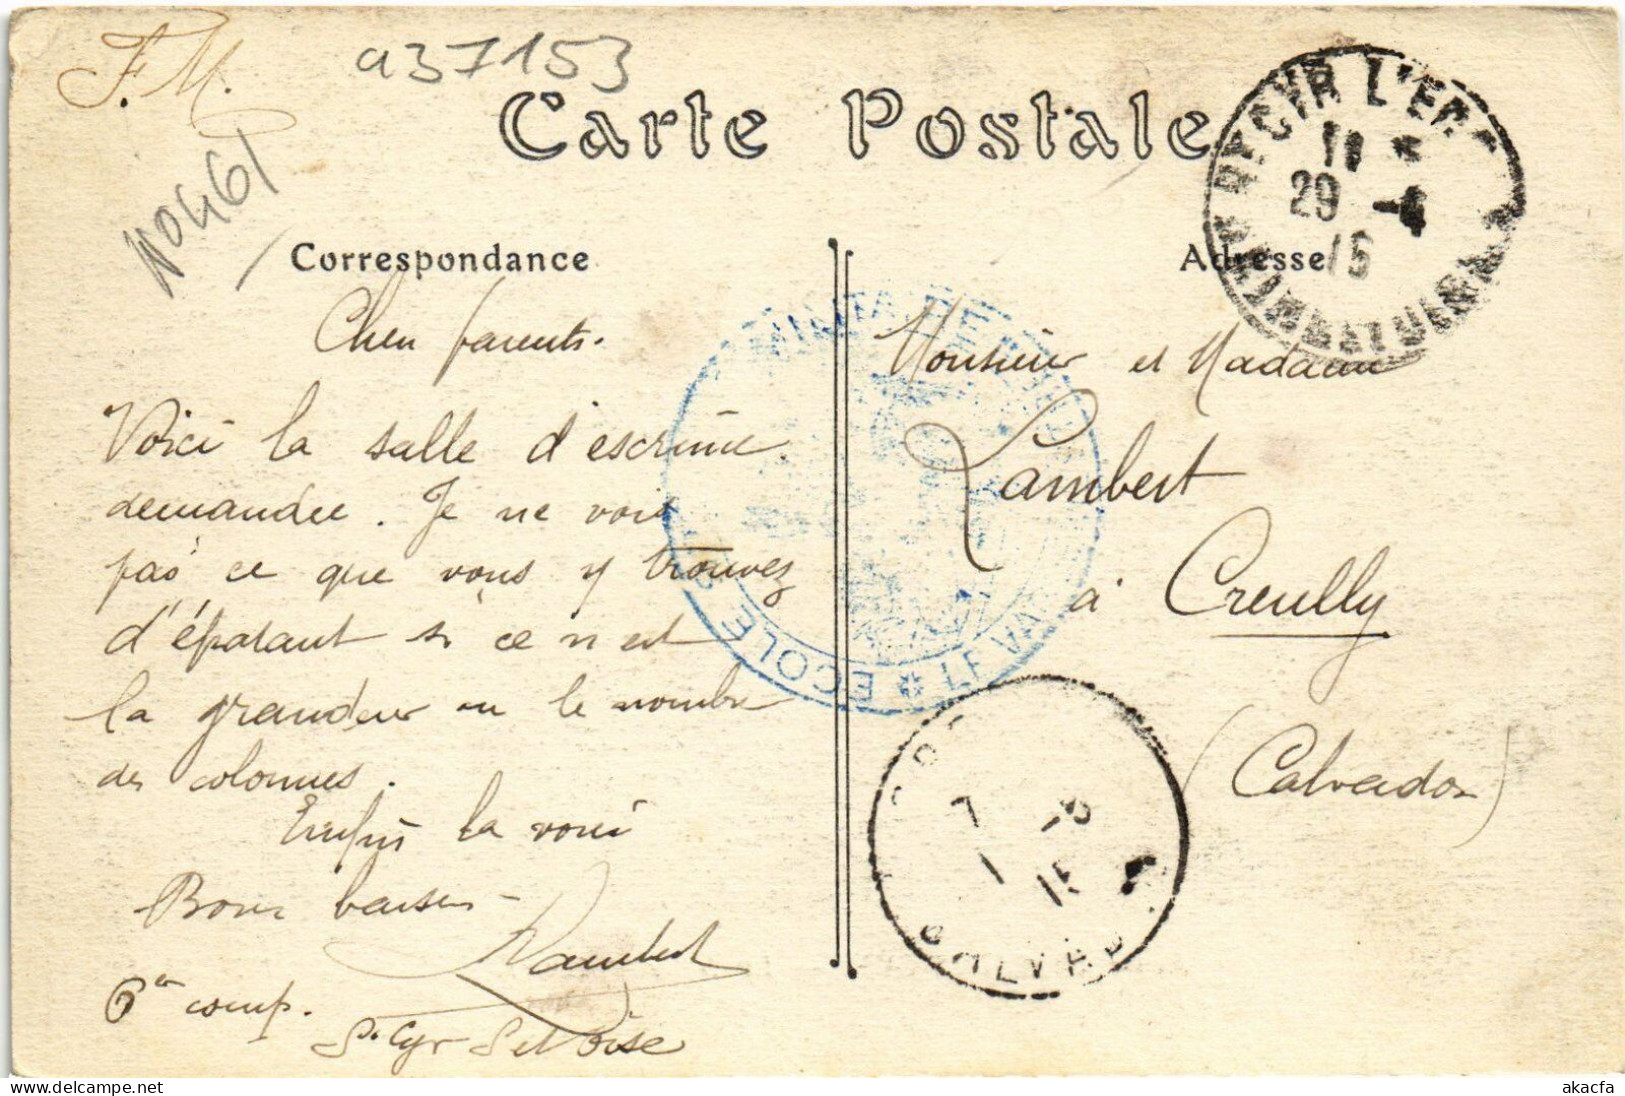 F.M.
a37153
N0461
Carte Postale
Correspondance
Adresse
Chers parents.
Voici la salle d'escrime
demandée. Je ne vois
pas ce que vous y trouvez
d'épatant si ce n'est
la grandeur ou le nombre
des colonnes.
Enfin la voici
Bons baisers -
Lambert
6e comp.
St Cyr S et Oise
Monsieur et Madame
Lambert
à Creully
(Calvados)
ST CYR L'ECOLE
11
29 - 4
15
MILITAIRE
ECOLE
* LE VA
7 - 5
15
CALVADOS
akacfa